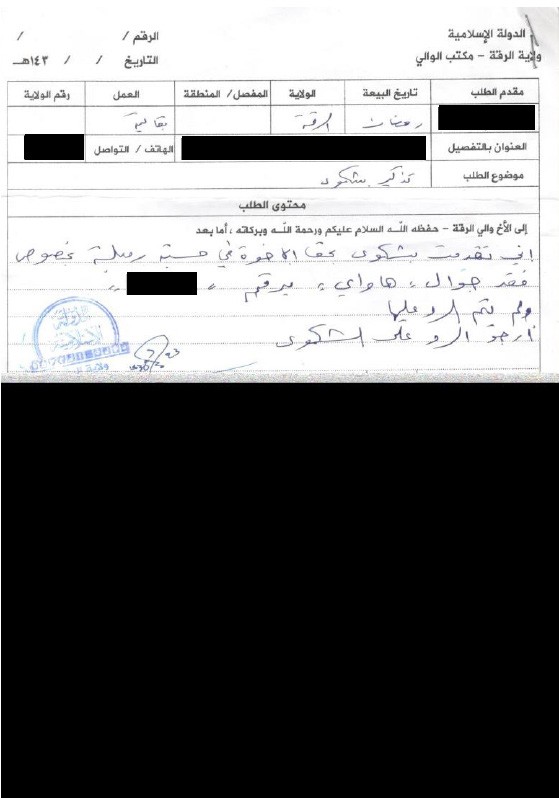 الدولة الإسلامية
ولاية الرقة - مكتب الوالي
الرقم / /
التاريخ / / ١٤٣هـ
مقدم الطلب تاريخ البيعة الولاية المفصل/ المنطقة العمل رقم الولاية
رمضان الرقة
العنوان بالتفصيل الهاتف/ التواصل
موضوع الطلب تذكير بشكوى
محتوى الطلب
إلى الأخ والي الرقة - حفظه اللـه السلام عليكم ورحمة اللـه وبركاته، أما بعد
اني تقدمت بشكوى بحق الاخوة في حسبة بخصوص
فقد جوال، هاواي، برقم " "
ولم يتم الرد عليها
أرجو الرد على الشكوى